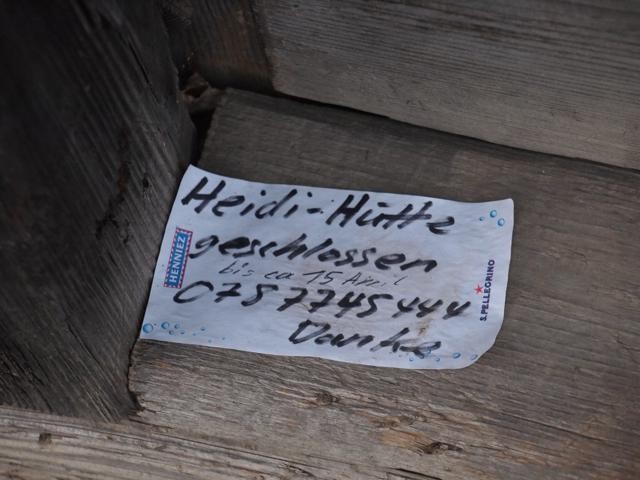 Heidi-Hütte
geschlossen
bis ca 15 April
0787745444
Danke
HENNIEZ
S.PELLEGRINO